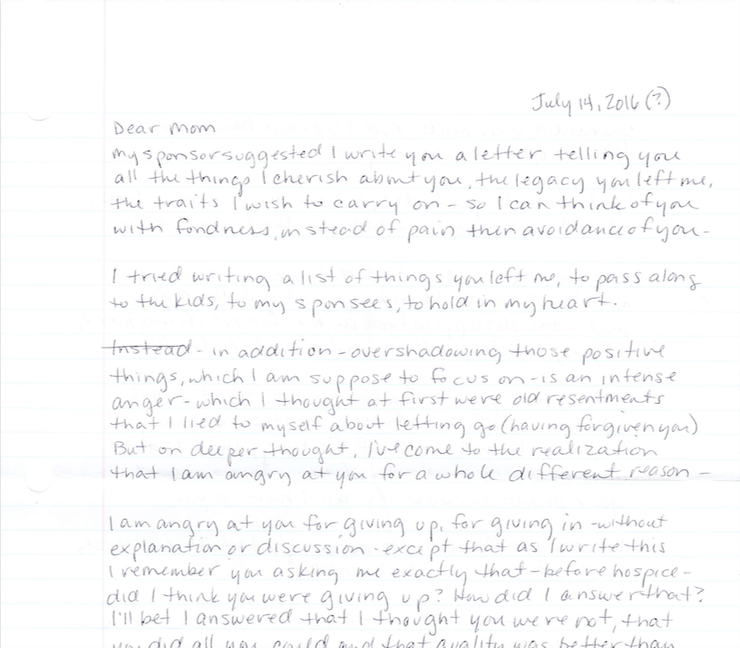 July 14, 2016 (?)
Dear Mom
My sponsor suggested I write you a letter telling you
all the things I cherish about you, the legacy you left me,
the traits I wish to carry on - so I can think of you
with fondness, instead of pain then avoidance of you -
I tried writing a list of things you left me, to pass along
to the kids, to my sponsees, to hold in my heart.
Instead - in addition - overshadowing those positive
things, which I am suppose to focus on - is an intense
anger - which I thought at first were old resentments
that I lied to myself about letting go (having forgiven you)
But on deeper thought, I've come to the realization
that I am angry at you for a whole different reason -
I am angry at you for giving up, for giving in - without
explanation or discussion - except that as I write this
I remember you asking me exactly that - before hospice -
did I think you were giving up? How did I answer that?
I'll bet I answered that I thought you were not, that
you did all you could and that quality was better than